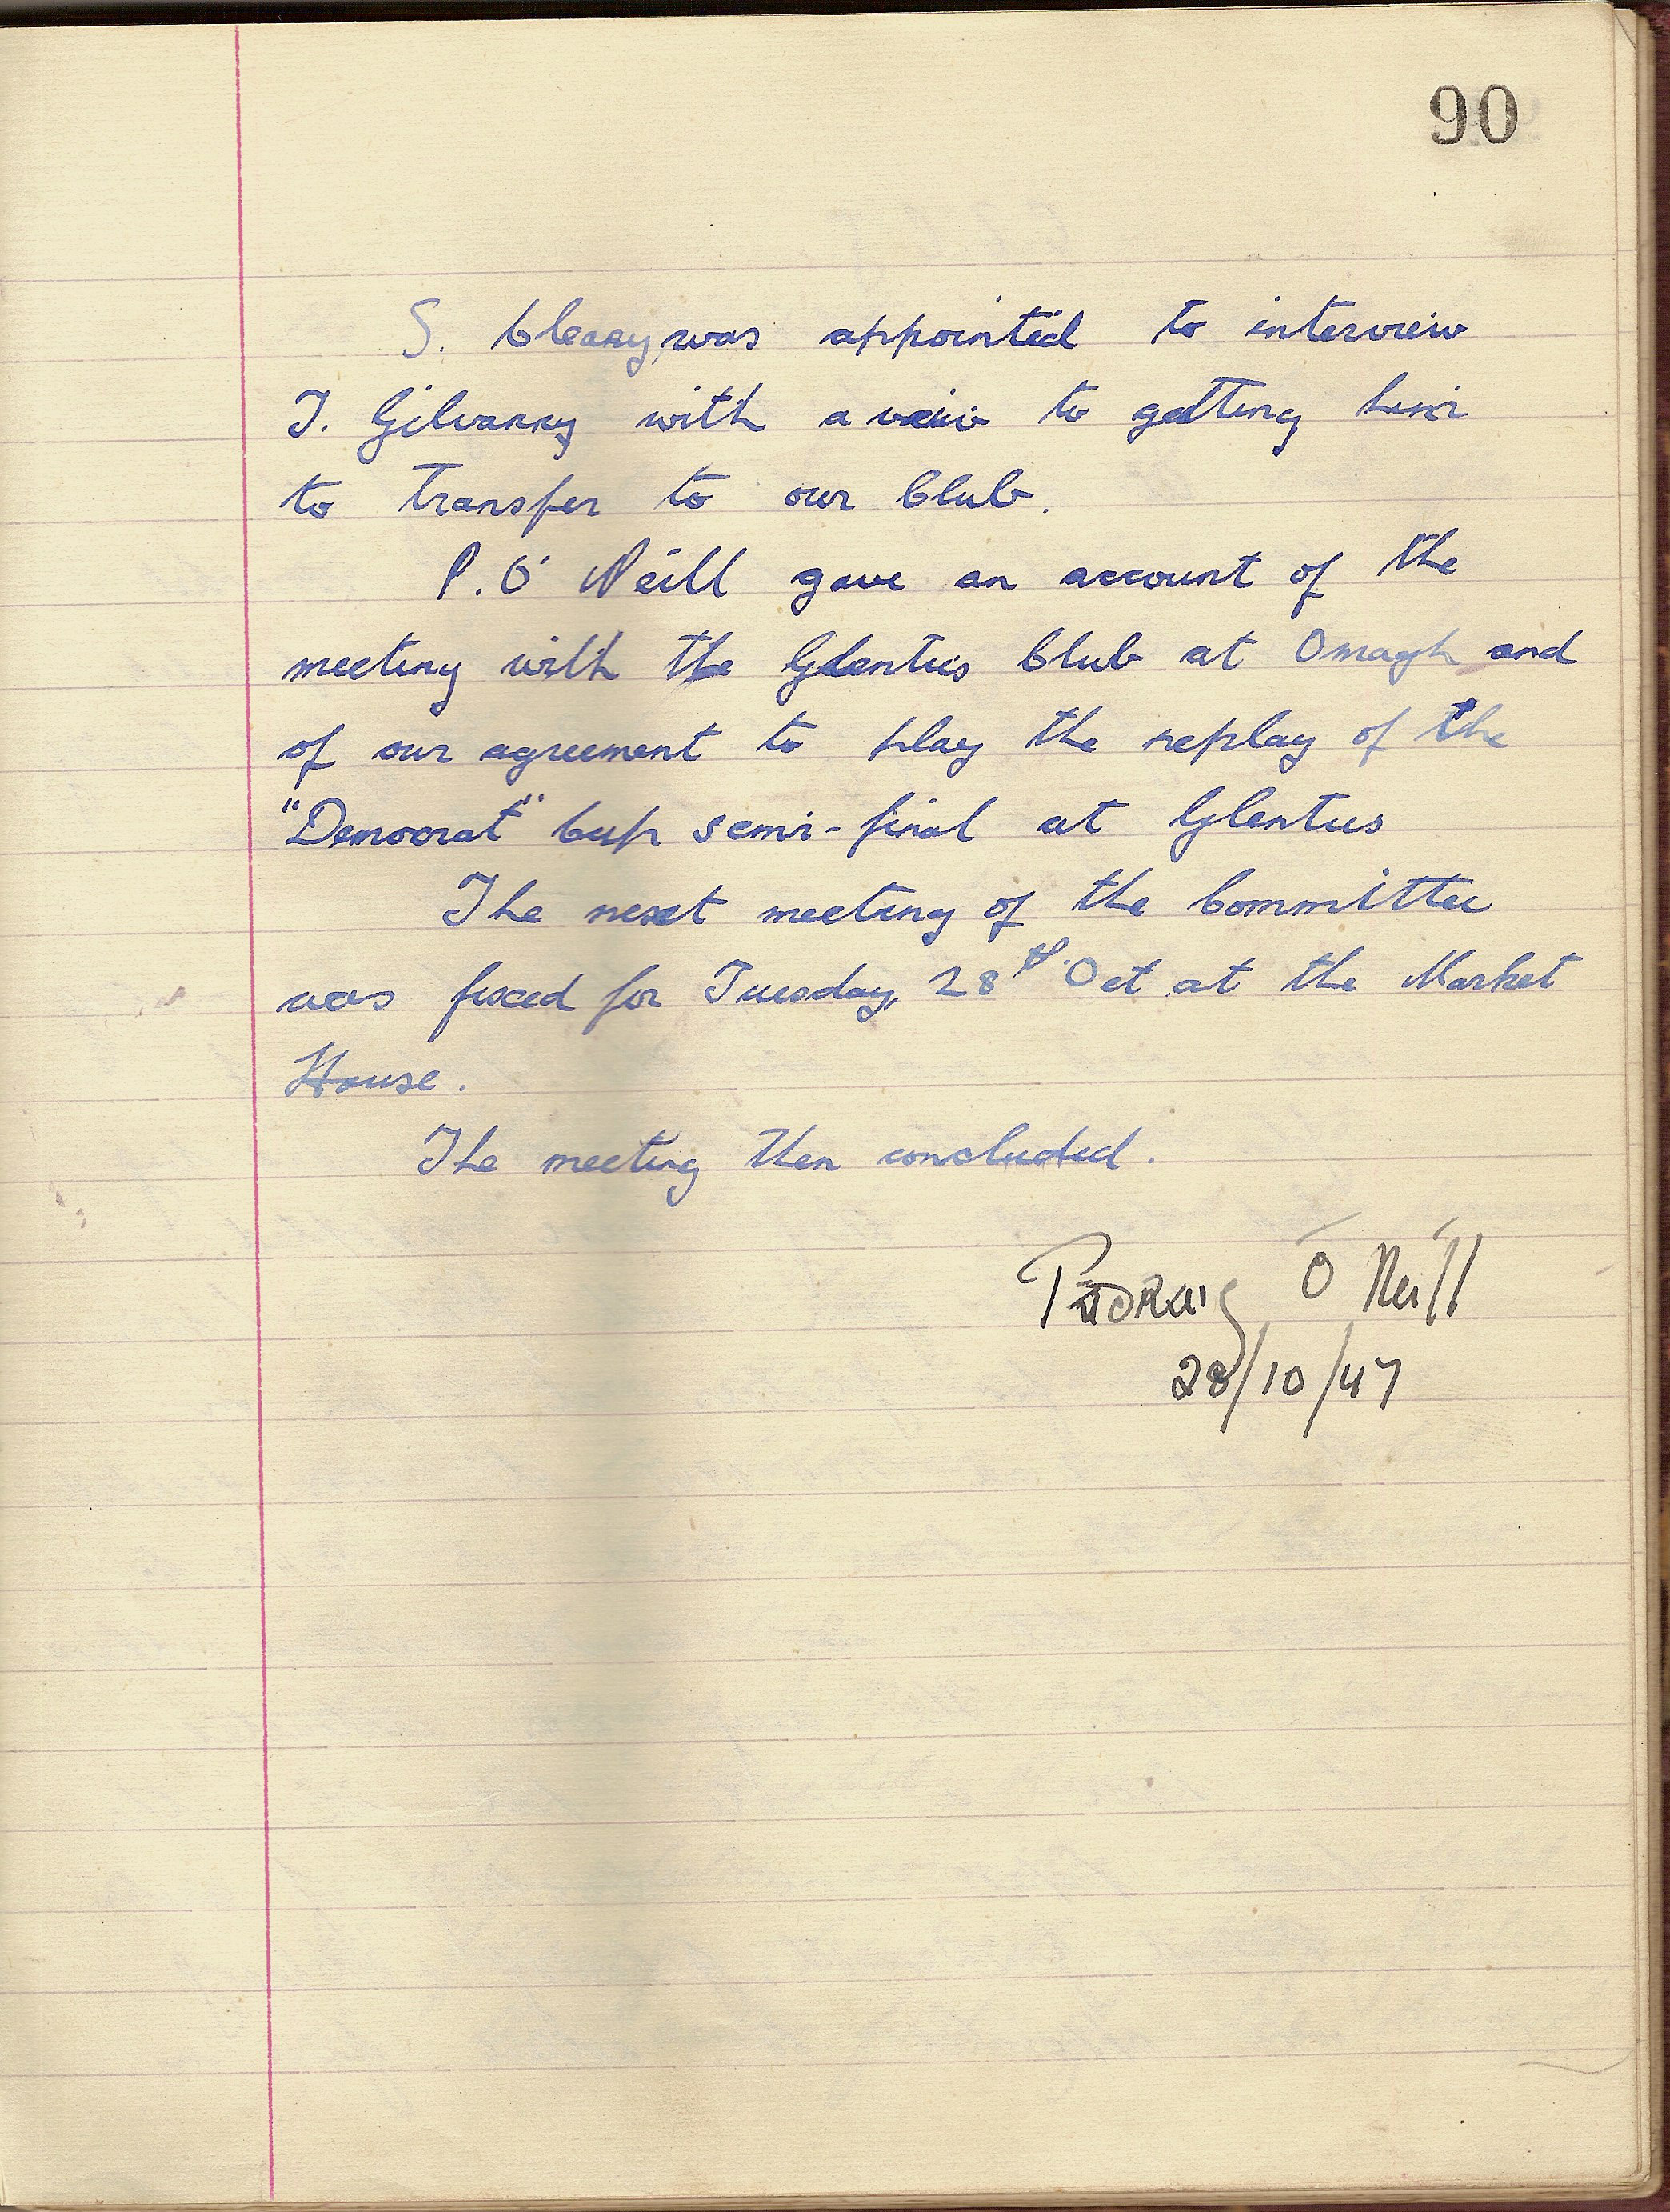 90
S. Cleary, was appointed to interview
T. Gilvarry with a veiw to getting him
to transfer to our Club.
P. O'Neill gave an account of the
meeting with the Glenties Club at Omagh and
of our agreement to play the replay of the
"Democrat" Cup semi-final at Glenties
The next meeting of the Committee
was fixed for Tuesday, 28th Oct at the Market
House.
The meeting then concluded.
Padraig Ó Néill
28/10/47